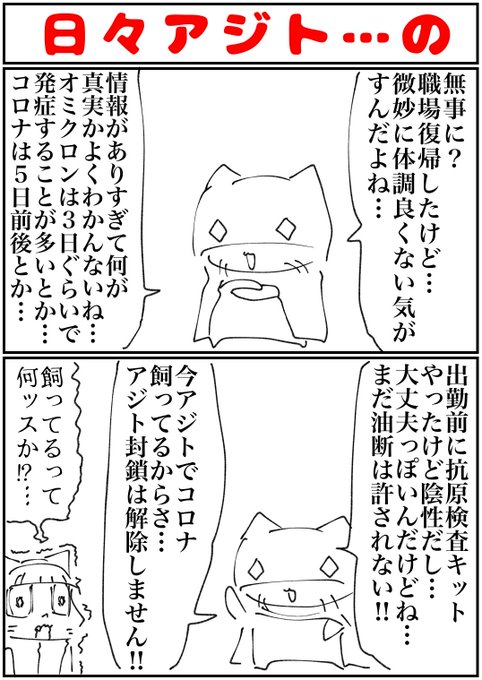 日々アジト…の
無事に?
職場復帰したけど…
微妙に体調良くない気が
すんだよね…
情報がありすぎて何が
真実かよくわかんないね…
オミクロンは3日ぐらいで
発症することが多いとか…
コロナは5日前後とか…
出勤前に抗原検査キット
やったけど陰性だし…
大丈夫っぽいんだけどね…
まだ油断は許されない!!
今アジトでコロナ
飼ってるからさ…
アジト封鎖は解除しません!!
飼ってるって
何ッスか!?…